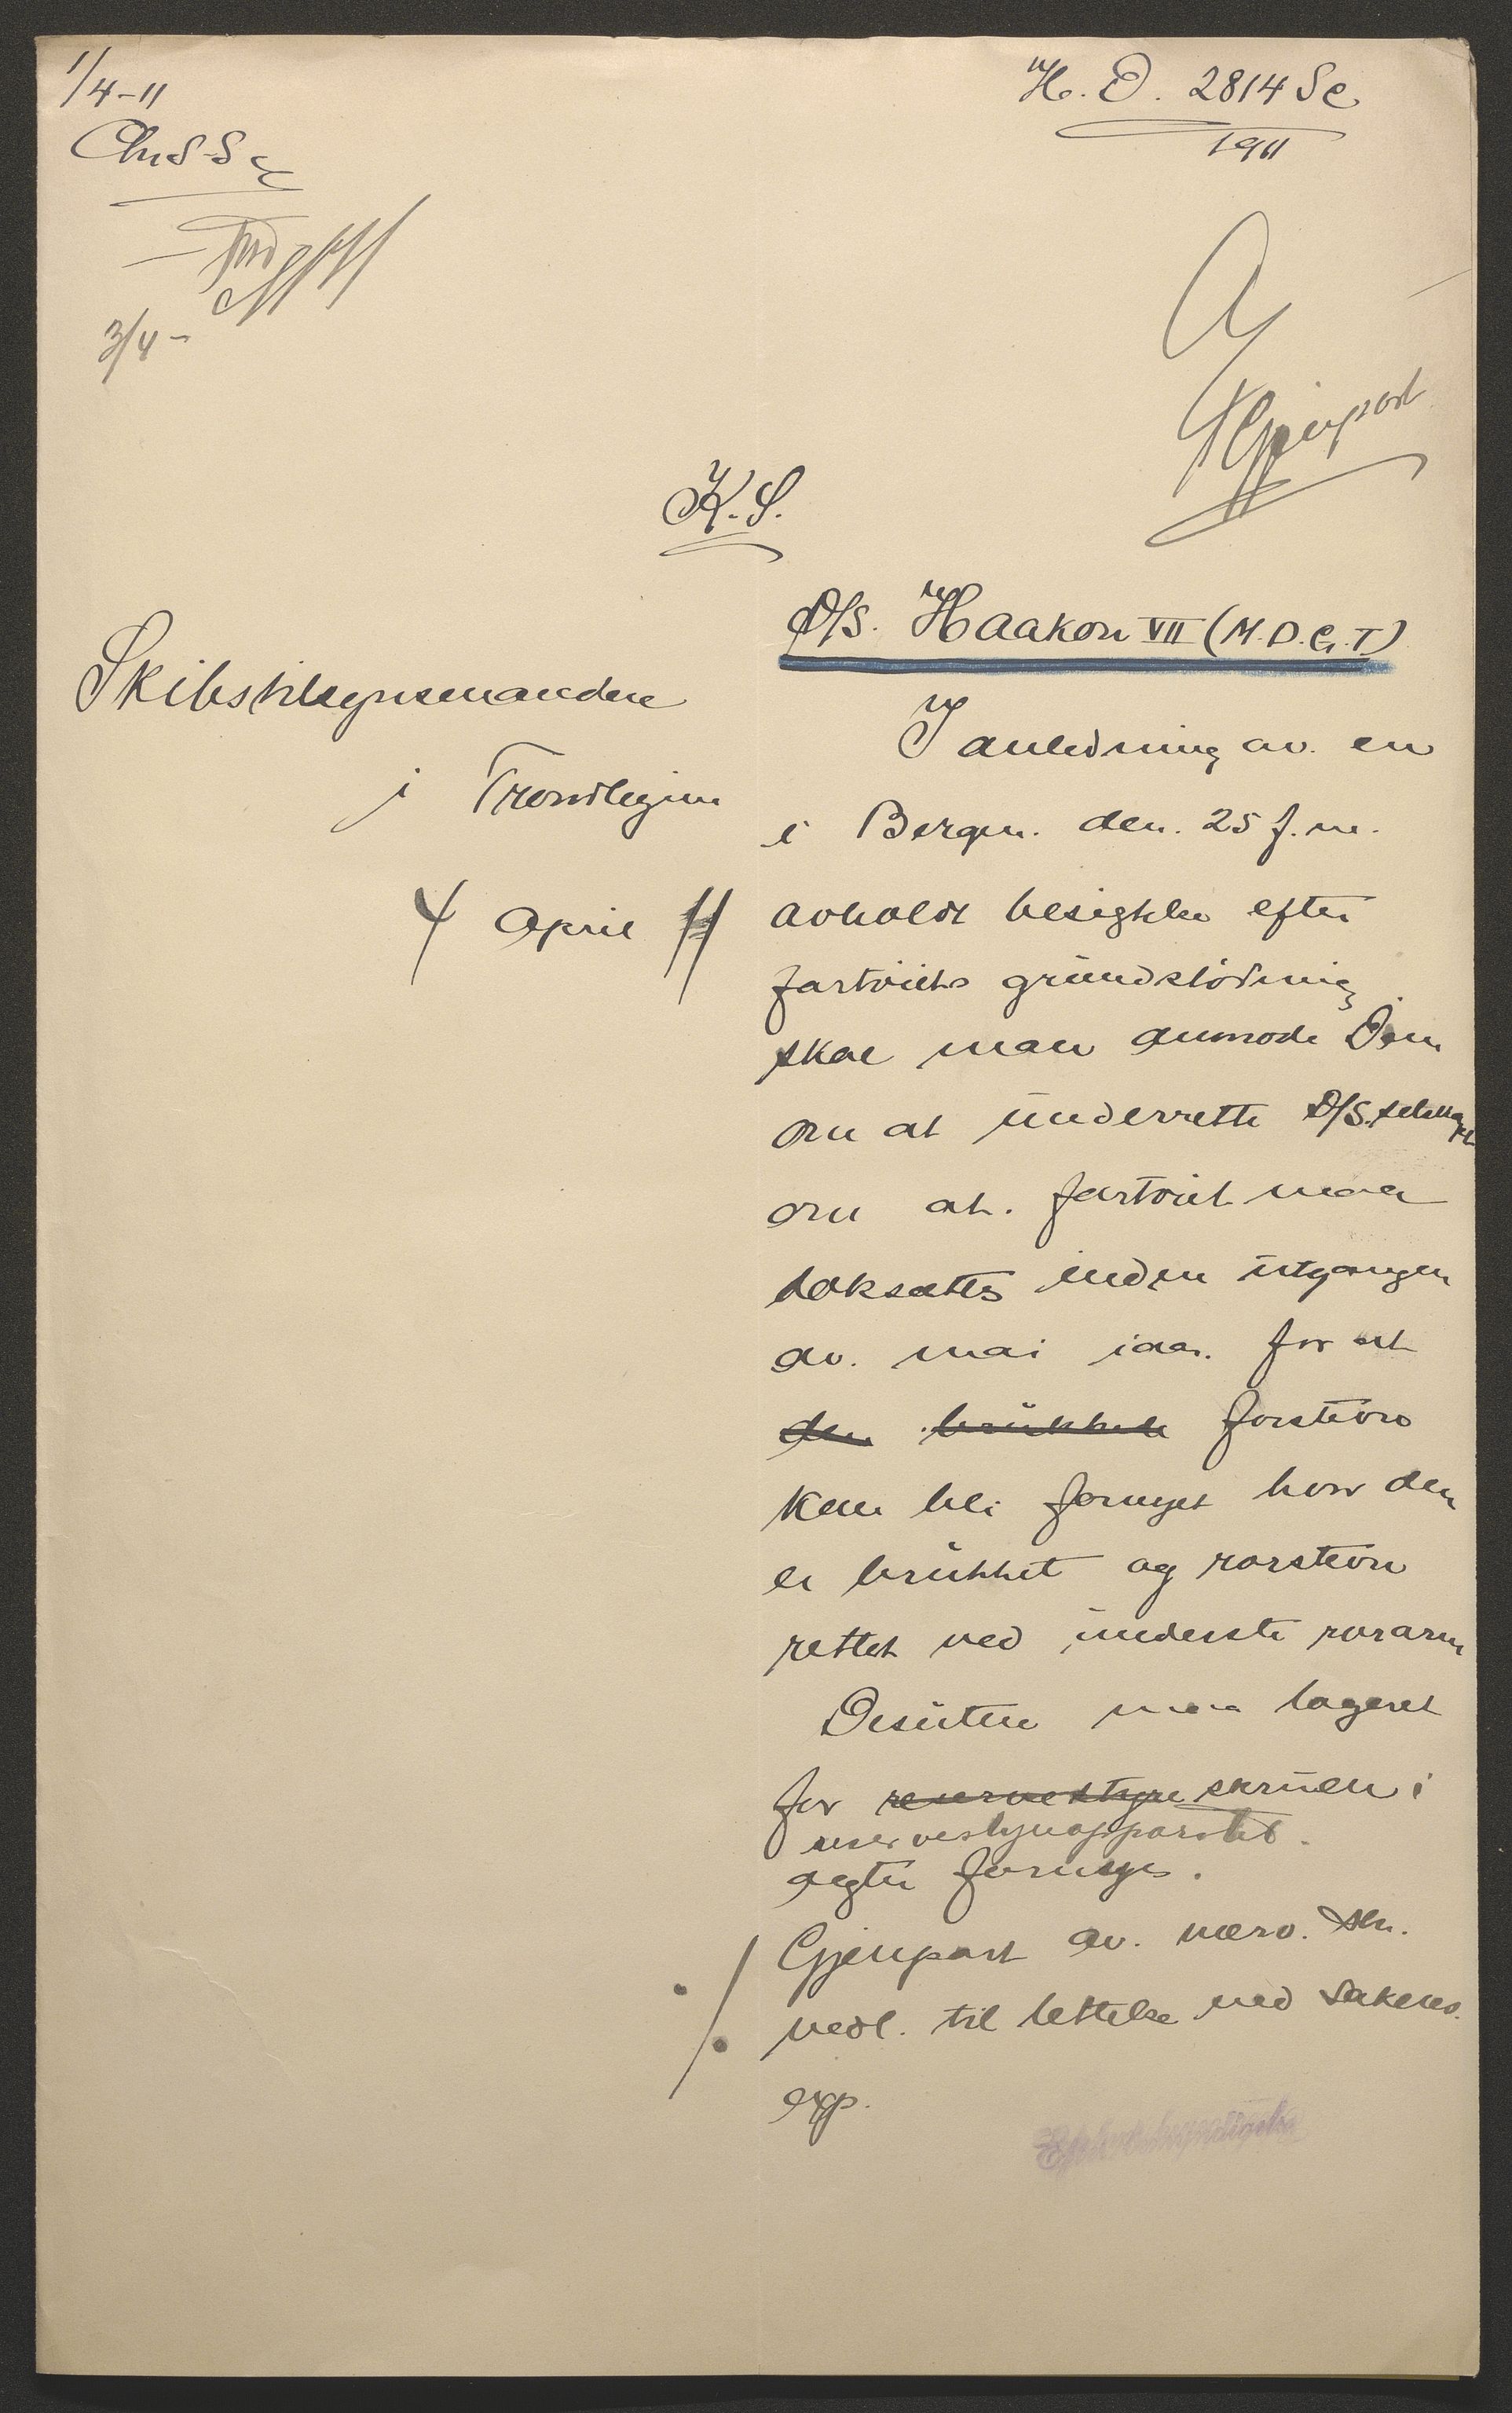 1/4-11
H. D. 2814 Se
1911
3/4-
Gjenpart
K. S.
D/S. Haakon VII (M.D.G.T)
Skibstilsynsmændene
i Trondhjem
4 April 11
I anledning av en
i Bergen den 25 f. m.
avholdt besigtelse efter
fartöiets grundstödning
skal man anmode Dem
om at underrette D/S. selskapet
om at fartöiet maa
doksættes inden utgangen
av mai iaar for at
den brukkede forstævn
kan bli fornyet hvor den
er brukket og rorstævn
rettet ved underste rorarm
Desuten maa lageret
for reservestyre skruen i
reservestyreapparatet
agter fornyes.
Gjenpart av nærv. skr.
./. vedl. til lettelse ved sakens
exp.